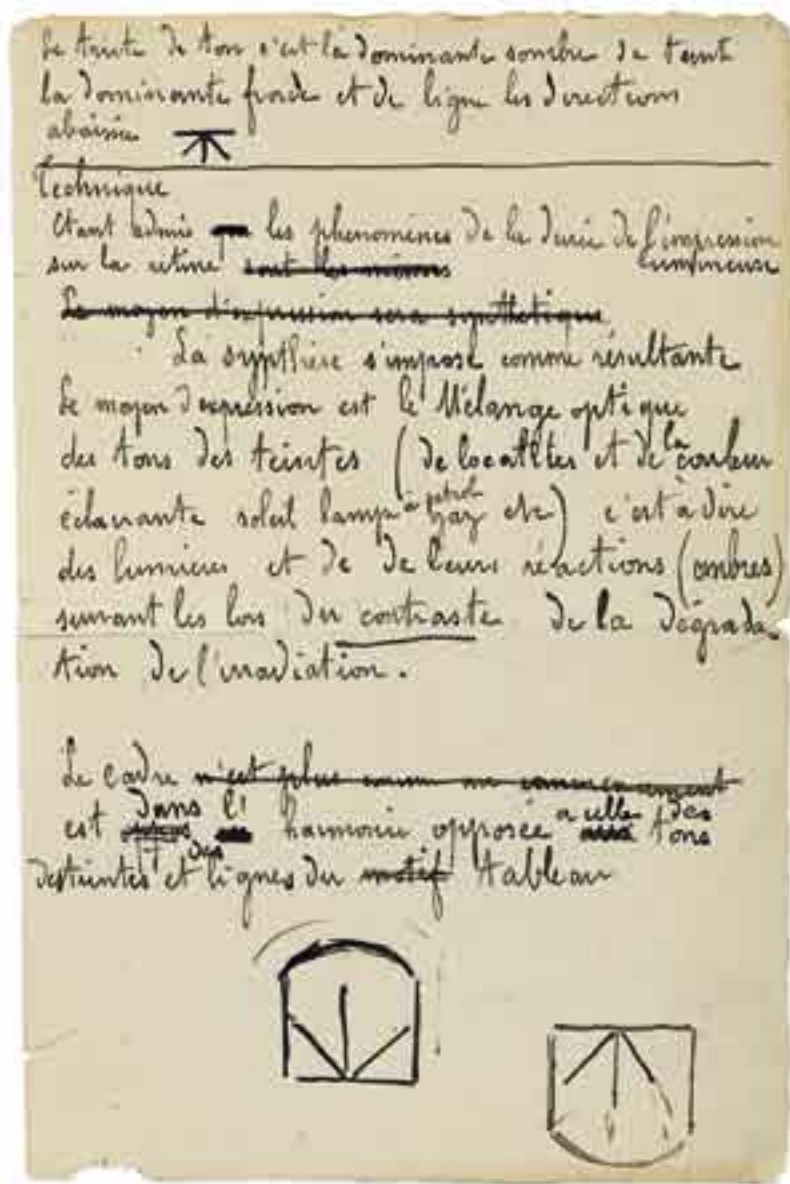 Le triste de ton c'est la dominante sombre de teinte
la dominante froide et de ligne les directions
abaissée
Technique
Etant admis que les phenomènes de la durée de l'impression
lumineuse
sur la retine sont les mêmes
Le moyen d'expression sera synthetique
La synthèse s'impose comme résultante
Le moyen d'expression est le Mélange optique
des tons des teintes (de localités et de la couleur
éclairante soleil lampe à petrole gaz etc) c'est à dire
des lumières et de de leurs réactions (ombres)
suivant les lois du contraste de la dégrada
tion de l'irradiation.
Le cadre n'est plus comme au commencement
est dans l' harmonie opposée à celle des tons
des teintes et des lignes du motif tableau